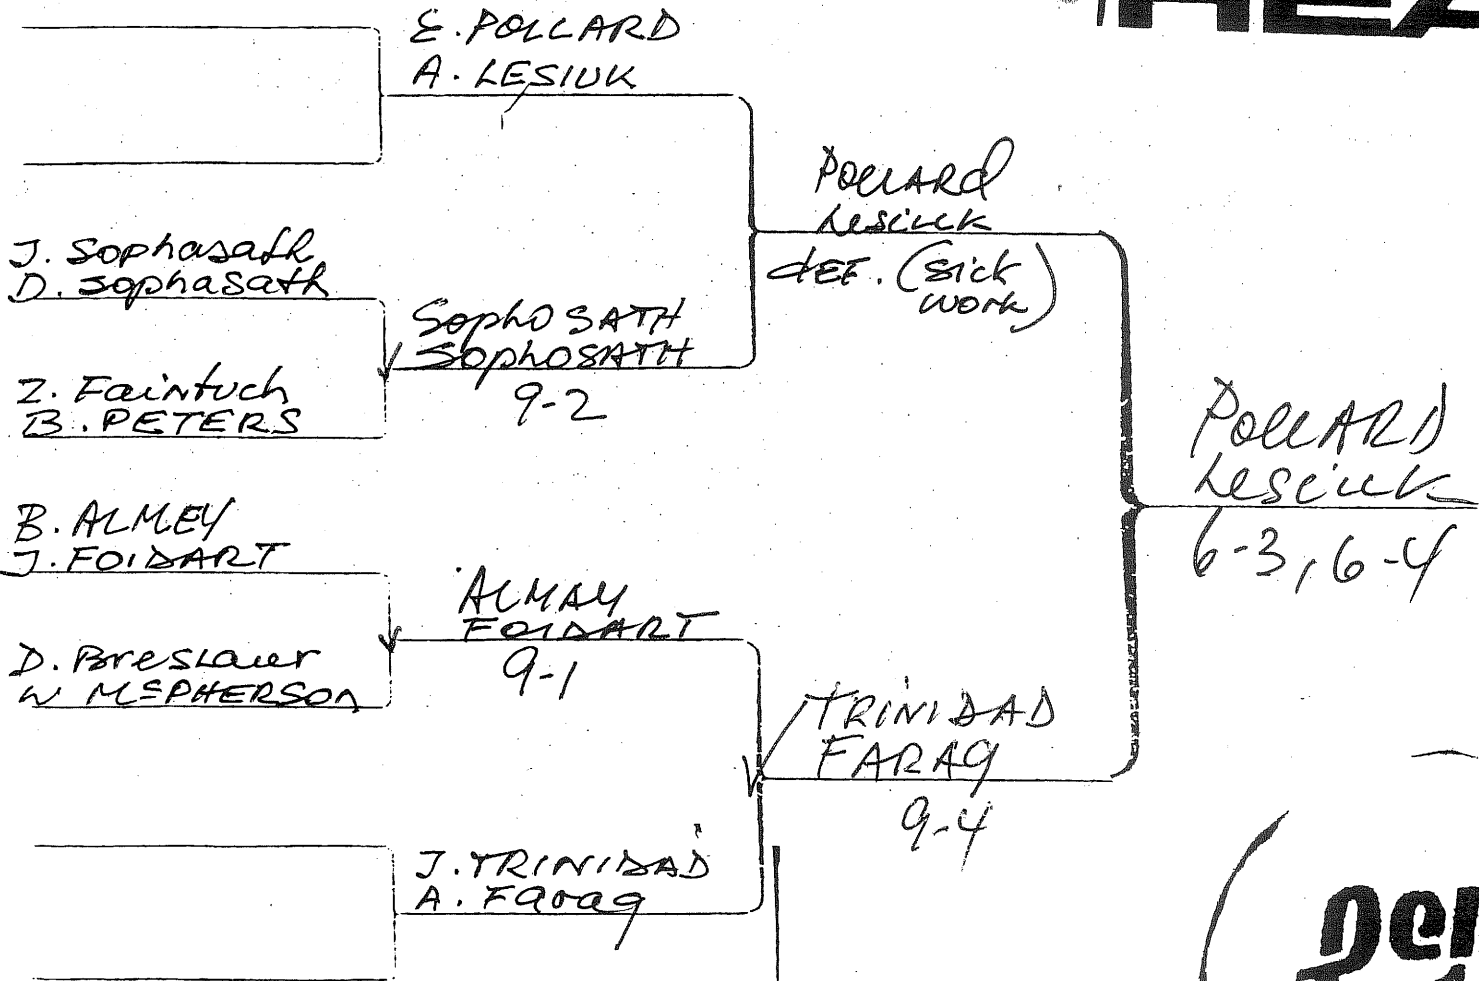 E. POLLARD
A. LESIUK
J. Sophasath
D. Sophasath
Z. Faintuch
B. PETERS
B. ALMEY
J. FOIDART
D. Breslauer
W McPHERSON
SophoSATH
SophoSATH
9-2
ALMAY
FOIDART
9-1
J. TRINIDAD
A. Farag
POLLARD
Lesiuk
dEF. (Sick
work)
TRINIDAD
FARAG
9-4
POLLARD
Lesiuk
6-3, 6-4